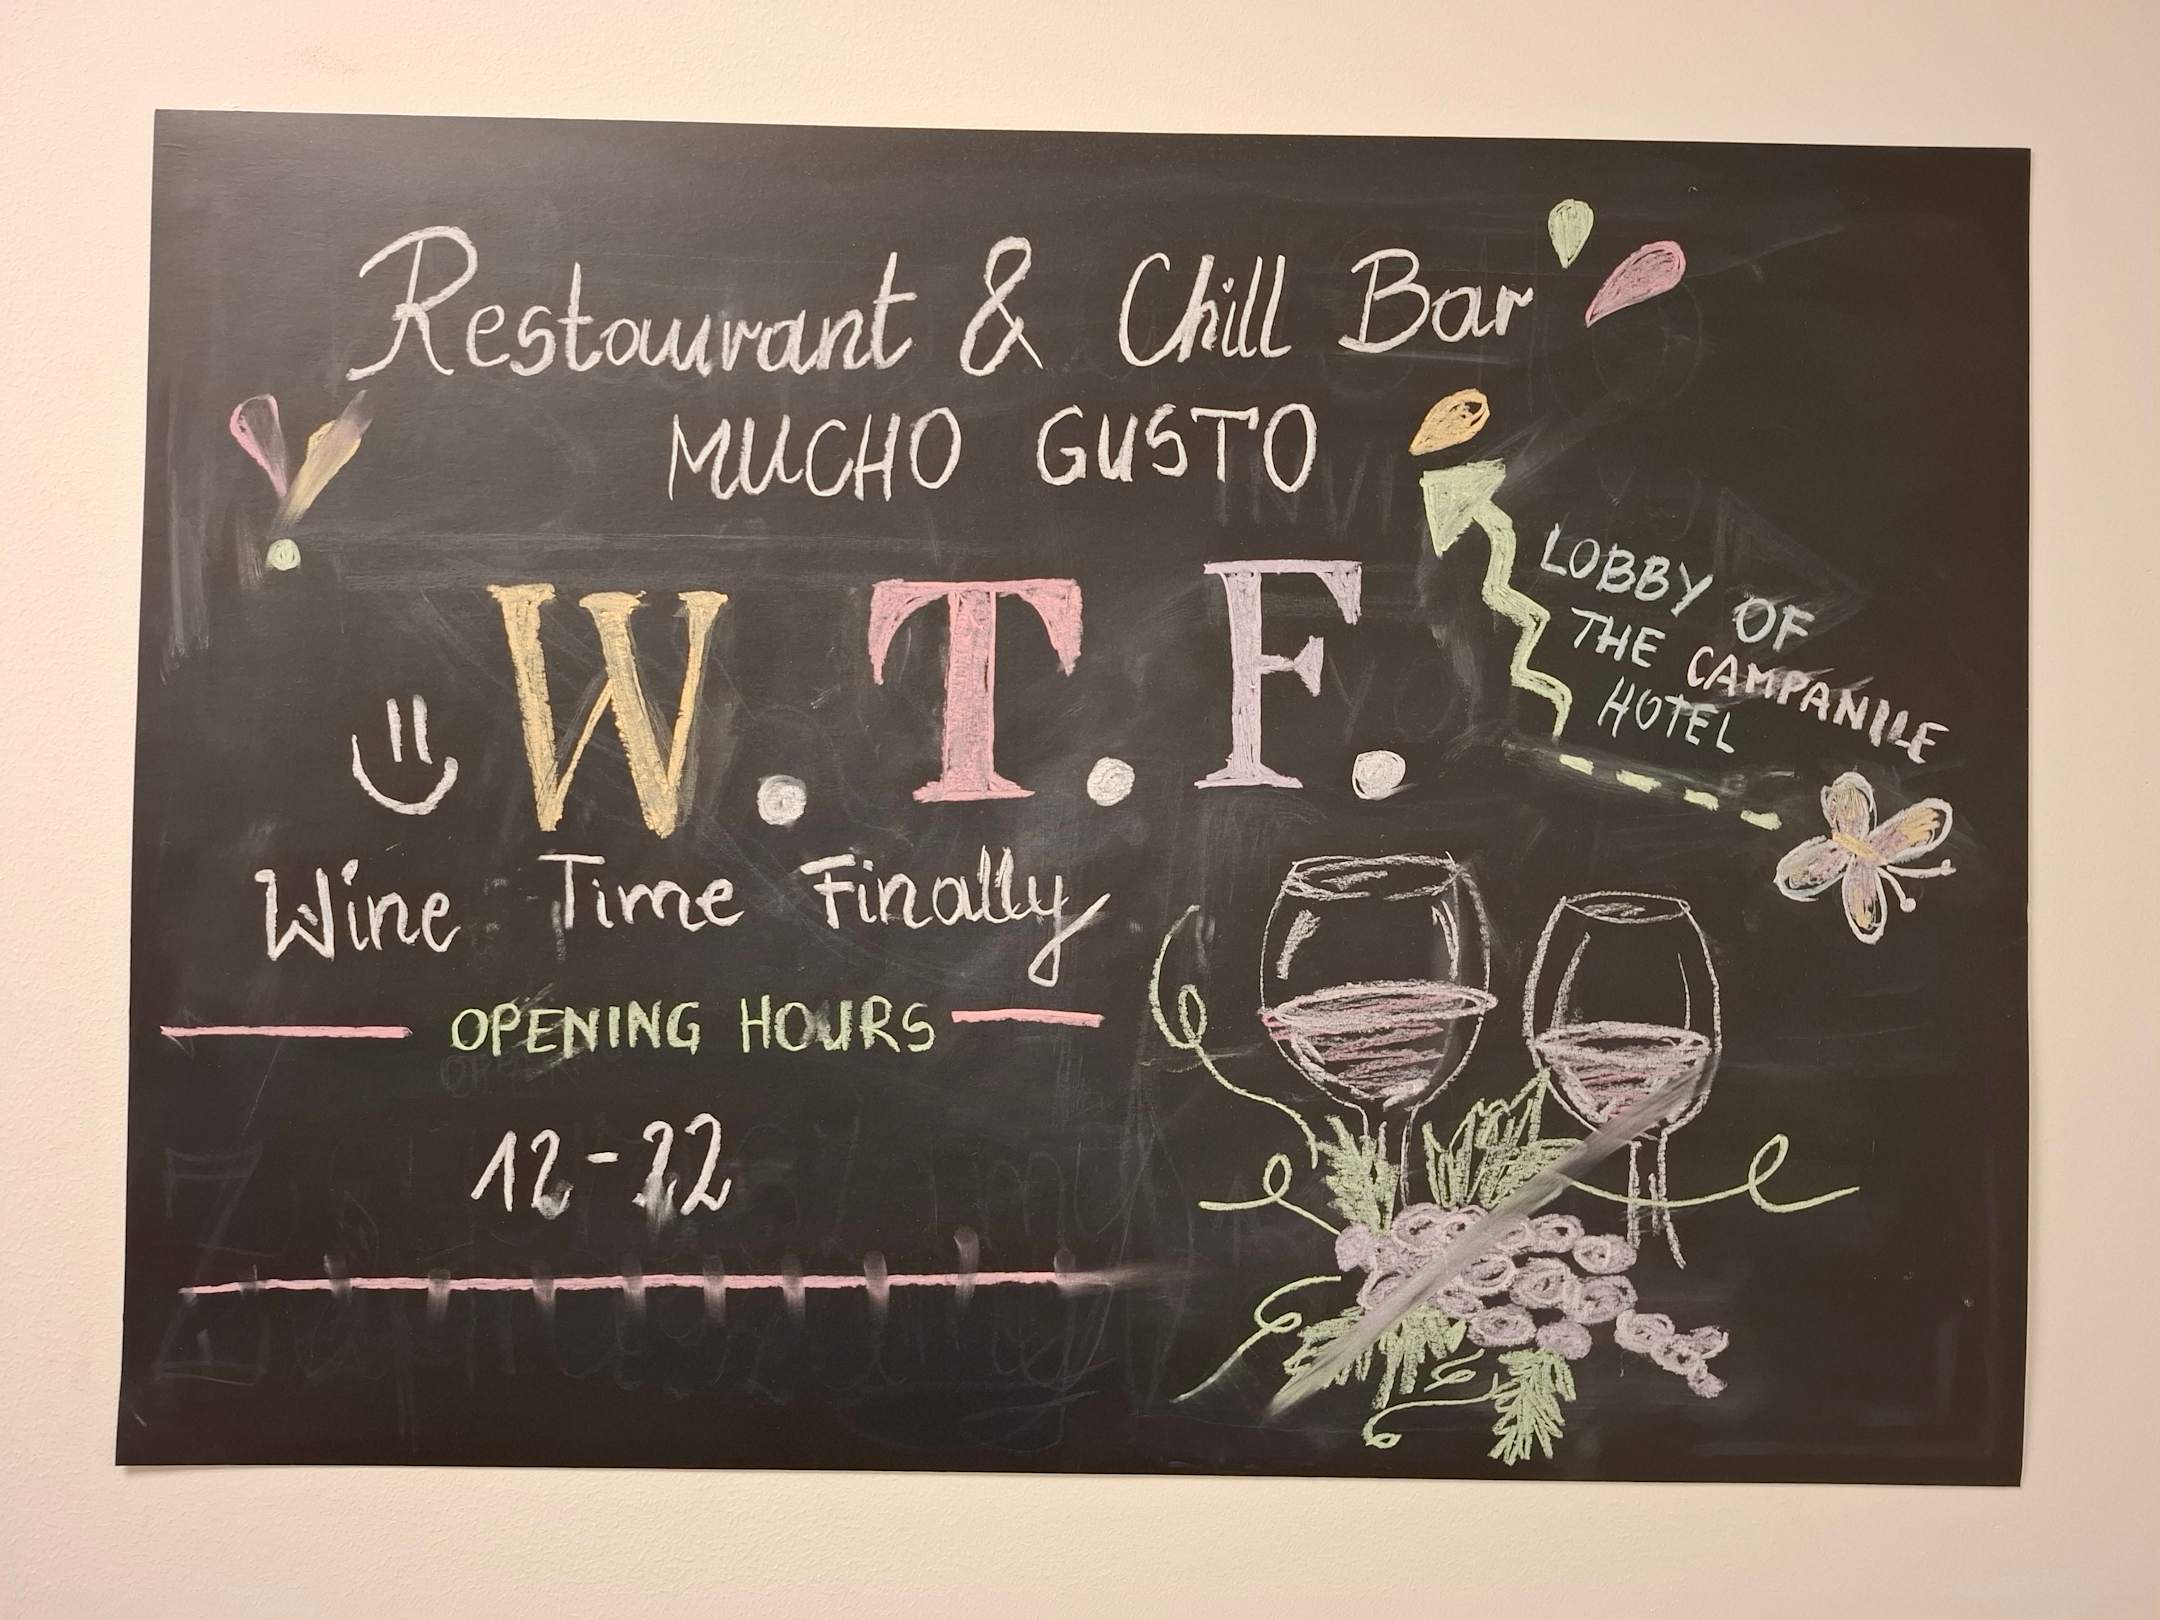 Restaurant & Chill Bar
MUCHO GUSTO
W.T.F.
Wine Time Finally
OPENING HOURS
12-22
LOBBY OF
THE CAMPANILE
HOTEL